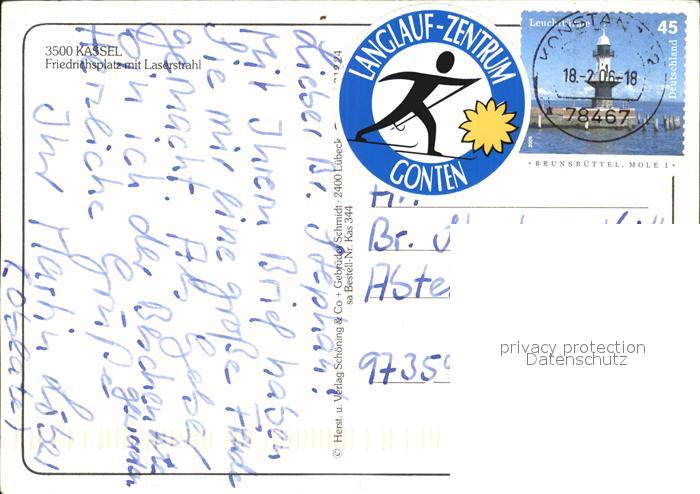 3500 KASSEL
Friedrichsplatz mit Laserstrahl
Lieber Br. Stephan!
Mit Ihrem Brief haben
Sie mir eine große Freude
gemacht. Als
bin ich der
geworden
Herzliche Grüße
Ihr Martin
© Herst. u. Verlag Schöning & Co + Gebrüder Schmidt · 2400 Lübeck
sa Bestell-Nr. Kas 344
LANGLAUF-ZENTRUM
GONTEN
Leuchttürme
45
Deutschland
KONSTANZ
18.-2.06-18
78467
· BRUNSBÜTTEL, MOLE 1 ·
Br.
Abte
9735
privacy protection
Datenschutz